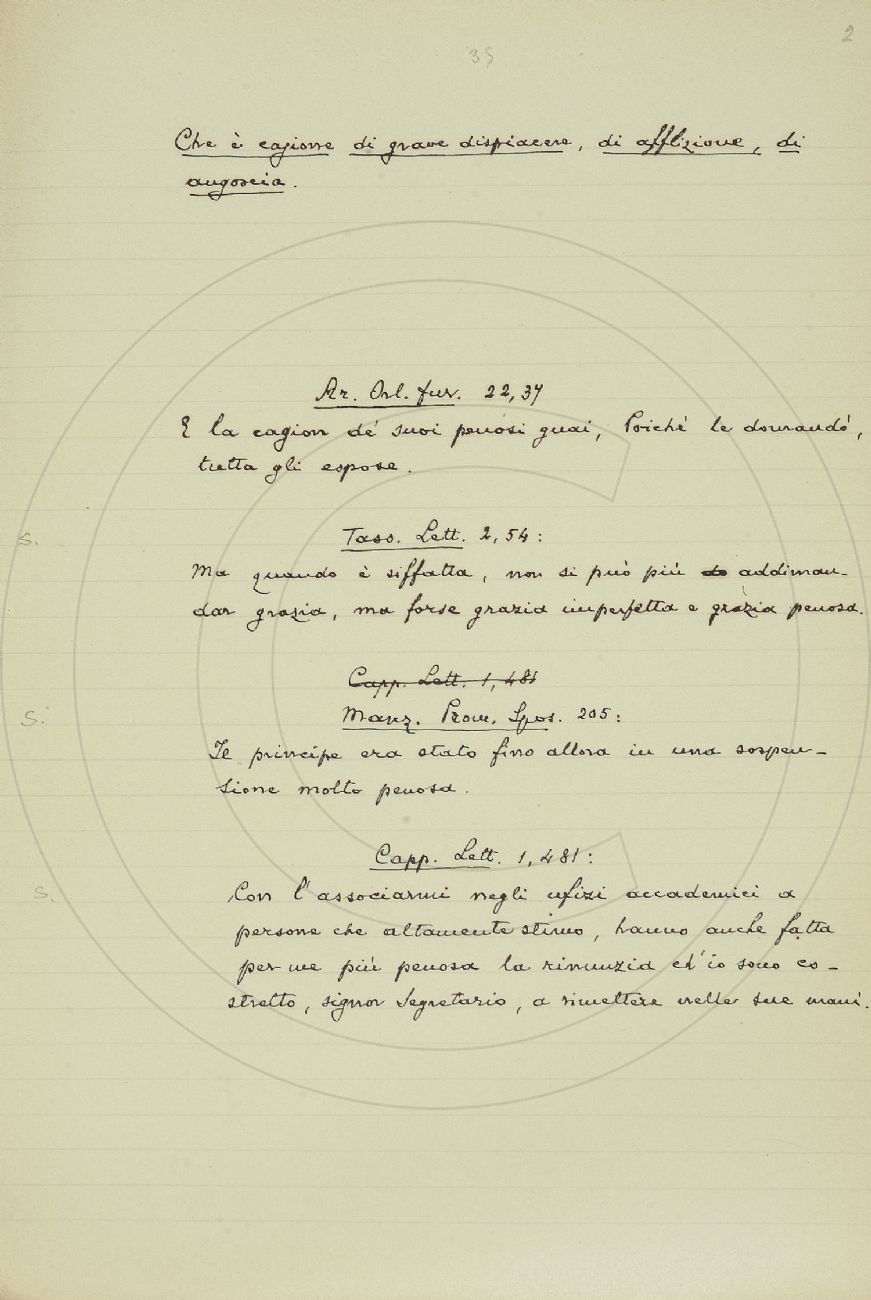 2
35
Che è cagione di grave dispiacere, di afflizione, di
angoscia.
Ar. Orl. fur. 22, 37
E la cagion de' suoi penosi guai, Poichè le domandò,
tutta gli espose.
S.
Tass. Lett. 2, 54:
Ma quando è siffatta, non si può più do addiman-
dar grazia, ma forse grazia imperfetta e grazia penosa.
Capp. Lett. 1, 481
S.
Manz. Prom. Spos. 205:
Il principe era stato fino allora in una sospen-
sione molto penosa.
Capp. Lett. 1, 481:
S.
Con l'associarmi negli ufizi accademici a
persone che altamente stimo, hanno anche fatta
per me più penosa la rinunzia ch'io sono co-
stretto, signor Segretario, a rimettere nelle sue mani.